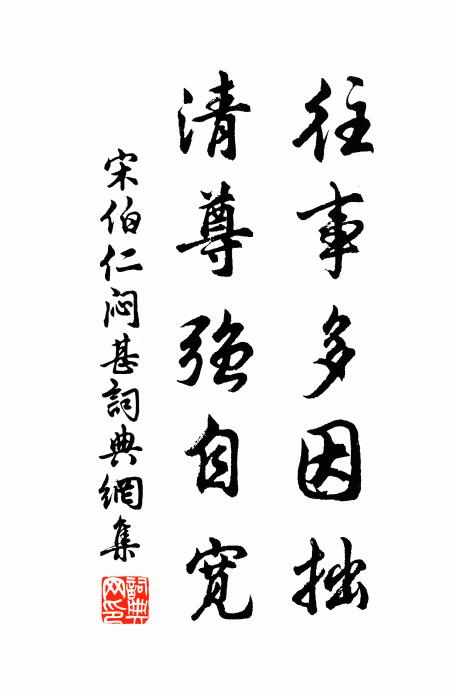 往事多因拙
清尊强自寬
宋伯仁闷甚詞典網集
詞典網印